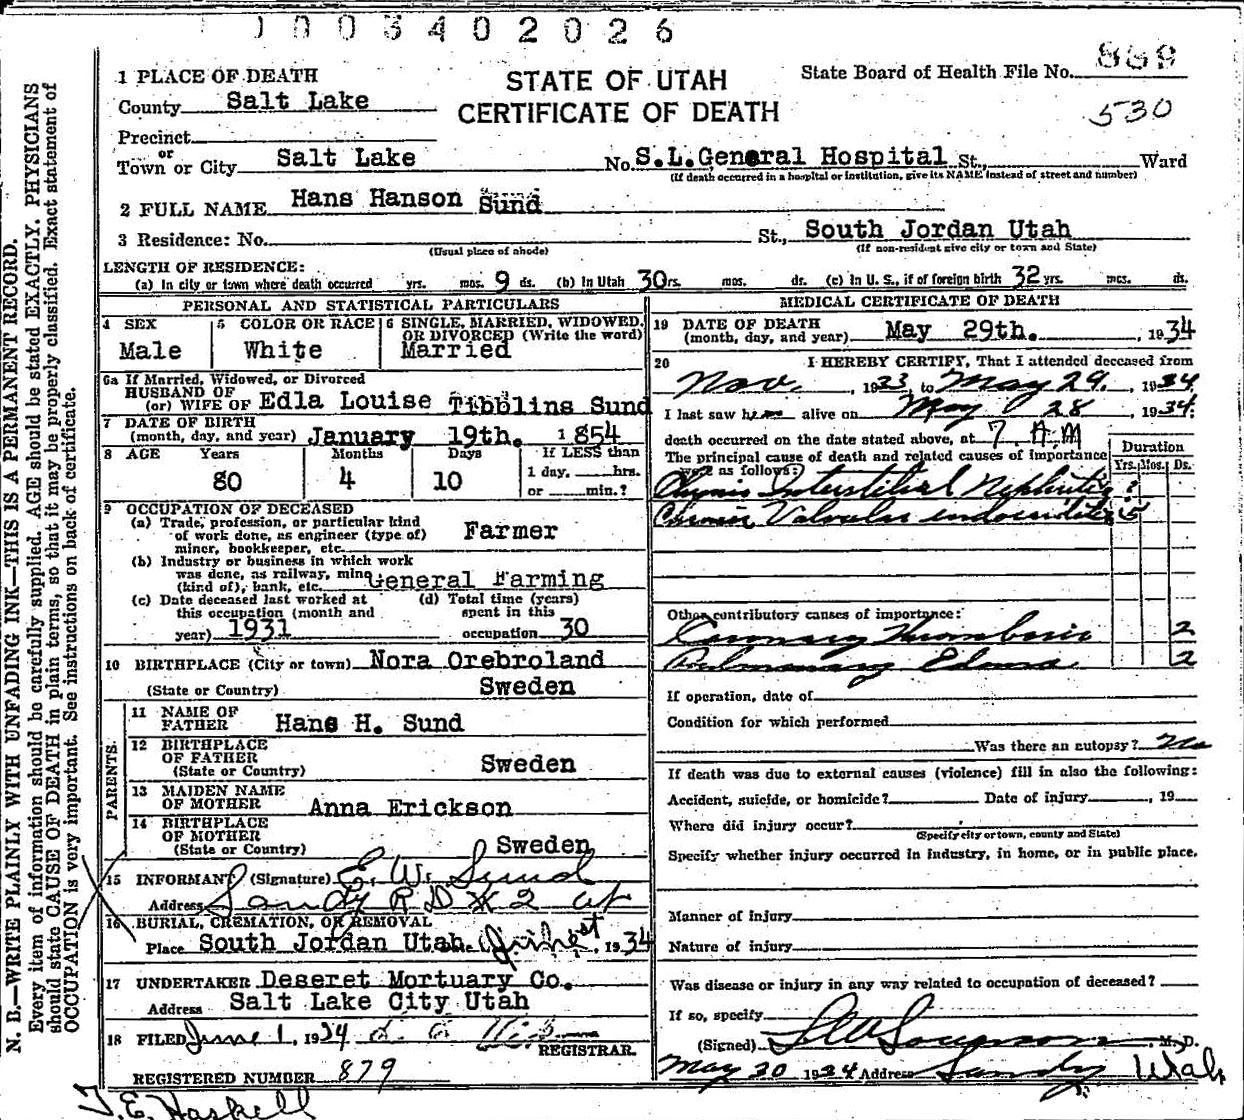 1003402026
1 PLACE OF DEATH
STATE OF UTAH
CERTIFICATE OF DEATH
State Board of Health File No. 869
530
County Salt Lake
Precinct
or
Town or City Salt Lake No. S.L.General Hospital St., Ward
(If death occurred in a hospital or institution, give its NAME instead of street and number)
2 FULL NAME Hans Hanson Sund
3 Residence: No. St., South Jordan Utah
(Usual place of abode) (If non-resident give city or town and State)
LENGTH OF RESIDENCE:
(a) In city or town where death occurred yrs. mos. 9 ds. (b) In Utah 30rs. mos. ds. (c) In U. S., if of foreign birth 32 yrs. mcs. ds.
PERSONAL AND STATISTICAL PARTICULARS
4 SEX
Male
5 COLOR OR RACE
White
6 SINGLE, MARRIED, WIDOWED,
OR DIVORCED (Write the word)
Married
6a If Married, Widowed, or Divorced
HUSBAND OF
(or) WIFE OF Edla Louise Tibblins Sund
7 DATE OF BIRTH
(month, day, and year) January 19th. 1854
8 AGE Years Months Days If LESS than
1 day, hrs.
80 4 10 or min.?
9 OCCUPATION OF DECEASED
(a) Trade, profession, or particular kind
of work done, as engineer (type of)
miner, bookkeeper, etc. Farmer
(b) Industry or business in which work
was done, as railway, mine
(kind of), bank, etc. General Farming
(c) Date deceased last worked at
this occupation (month and
year) 1931
(d) Total time (years)
spent in this
occupation 30
10 BIRTHPLACE (City or town) Nora Orebroland
(State or Country) Sweden
PARENTS.
11 NAME OF
FATHER Hans H. Sund
12 BIRTHPLACE
OF FATHER
(State or Country) Sweden
13 MAIDEN NAME
OF MOTHER Anna Erickson
14 BIRTHPLACE
OF MOTHER
(State or Country) Sweden
15 INFORMANT (Signature) E. W. Sund
Address Sandy R D # 2 ut
16 BURIAL, CREMATION, OR REMOVAL
Place South Jordan Utah. June 1st, 1934
17 UNDERTAKER Deseret Mortuary Co.
Address Salt Lake City Utah
18 FILED June 1, 1934
REGISTRAR.
REGISTERED NUMBER 879
T. E. Haskell
MEDICAL CERTIFICATE OF DEATH
19 DATE OF DEATH
(month, day, and year) May 29th. , 1934
20 I HEREBY CERTIFY, That I attended deceased from
Nov. , 1933, to May 29. , 1934.
I last saw him alive on May 28 , 1934.
death occurred on the date stated above, at 7. A.M
The principal cause of death and related causes of importance
were as follows:
Duration
Yrs. Mos. Ds.
Chronic Interstitial Nephritis ?
Chronic Valvular endocarditis 5
Other contributory causes of importance:
Coronary Thrombosis 2
Pulmonary Edema 2
If operation, date of
Condition for which performed
Was there an autopsy? No
If death was due to external causes (violence) fill in also the following:
Accident, suicide, or homicide? Date of injury , 19
Where did injury occur?
(Specify city or town, county and State)
Specify whether injury occurred in industry, in home, or in public place.
Manner of injury
Nature of injury
Was disease or injury in any way related to occupation of deceased?
If so, specify
(Signed) M. D.
May 30 1934 Address Sandy Utah
N. B.—WRITE PLAINLY WITH UNFADING INK—THIS IS A PERMANENT RECORD.
Every item of information should be carefully supplied. AGE should be stated EXACTLY. PHYSICIANS
should state CAUSE OF DEATH in plain terms, so that it may be properly classified. Exact statement of
OCCUPATION is very important. See instructions on back of certificate.